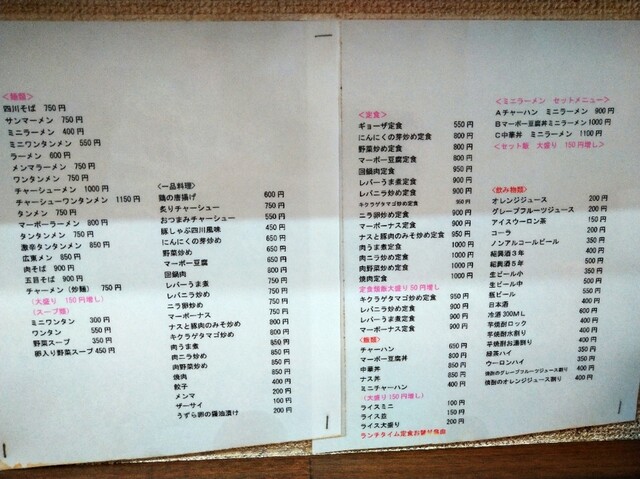 ＜麺類＞
四川そば 750円
サンマーメン 750円
ミニラーメン 400円
ミニワンタンメン 550円
ラーメン 600円
メンマラーメン 750円
ワンタンメン 750円
チャーシューメン 1000円
チャーシューワンタンメン 1150円
タンメン 750円
マーボーラーメン 800円
タンタンメン 750円
激辛タンタンメン 850円
広東メン 850円
肉そば 900円
五目そば 900円
チャーメン（炒麺） 750円
（大盛り 150円増し）
（スープ類）
ミニワンタン 300円
ワンタン 550円
野菜スープ 350円
卵入り野菜スープ 450円
＜一品料理＞
鶏の唐揚げ 600円
炙りチャーシュー 750円
おつまみチャーシュー 550円
豚しゃぶ四川風味 450円
にんにくの芽炒め 650円
野菜炒め 650円
マーボー豆腐 650円
回鍋肉 800円
レバーうま煮 800円
レバニラ炒め
ニラ卵炒め
マーボーナス
ナスと豚肉のみそ炒め
キクラゲタマゴ炒め
肉うま煮
肉ニラ炒め
肉野菜炒め
焼肉
餃子 400円
メンマ 200円
ザーサイ 100円
うずら卵の醤油漬け 200円
＜定食＞
ギョーザ定食 550円
にんにくの芽炒め定食 800円
野菜炒め定食 800円
マーボー豆腐定食 800円
回鍋肉定食 950円
レバーうま煮定食 950円
キクラゲタマゴ炒め定食 950円
ニラ卵炒め定食 950円
マーボーナス定食 950円
ナスと豚肉のみそ炒め定食 950円
肉うま煮定食 1000円
肉ニラ炒め定食 1000円
肉野菜炒め定食 1000円
焼肉定食 1000円
定食麺飯大盛り50円増し
キクラゲタマゴ炒め定食 950円
レバニラ炒め定食 950円
レバーうま煮定食 950円
マーボーナス定食 950円
チャーハン 650円
マーボー豆腐丼 800円
中華丼 850円
ナス丼 850円
ミニチャーハン 400円
（大盛り150円増し）
ライスミニ 100円
ライス並 150円
ライス大盛り 200円
＜ミニラーメン セットメニュー＞
Aチャーハン ミニラーメン 900円
Bマーボー豆腐丼ミニラーメン1000円
C中華丼 ミニラーメン 1100円
＜セット飯 大盛り 150円増し＞
＜飲み物類＞
オレンジジュース 200円
グレープフルーツジュース 200円
アイスウーロン茶 150円
コーラ 200円
ノンアルコールビール 350円
紹興酒3年 400円
紹興酒5年 500円
生ビール小 350円
生ビール中 500円
瓶ビール 550円
日本酒 400円
冷酒300ML 600円
芋焼酎ロック 400円
芋焼酎水割り 400円
芋焼酎お湯割り 400円
緑茶ハイ 350円
ウーロンハイ 350円
焼酎のグレープフルーツジュース割り 400円
焼酎のオレンジジュース割り 400円